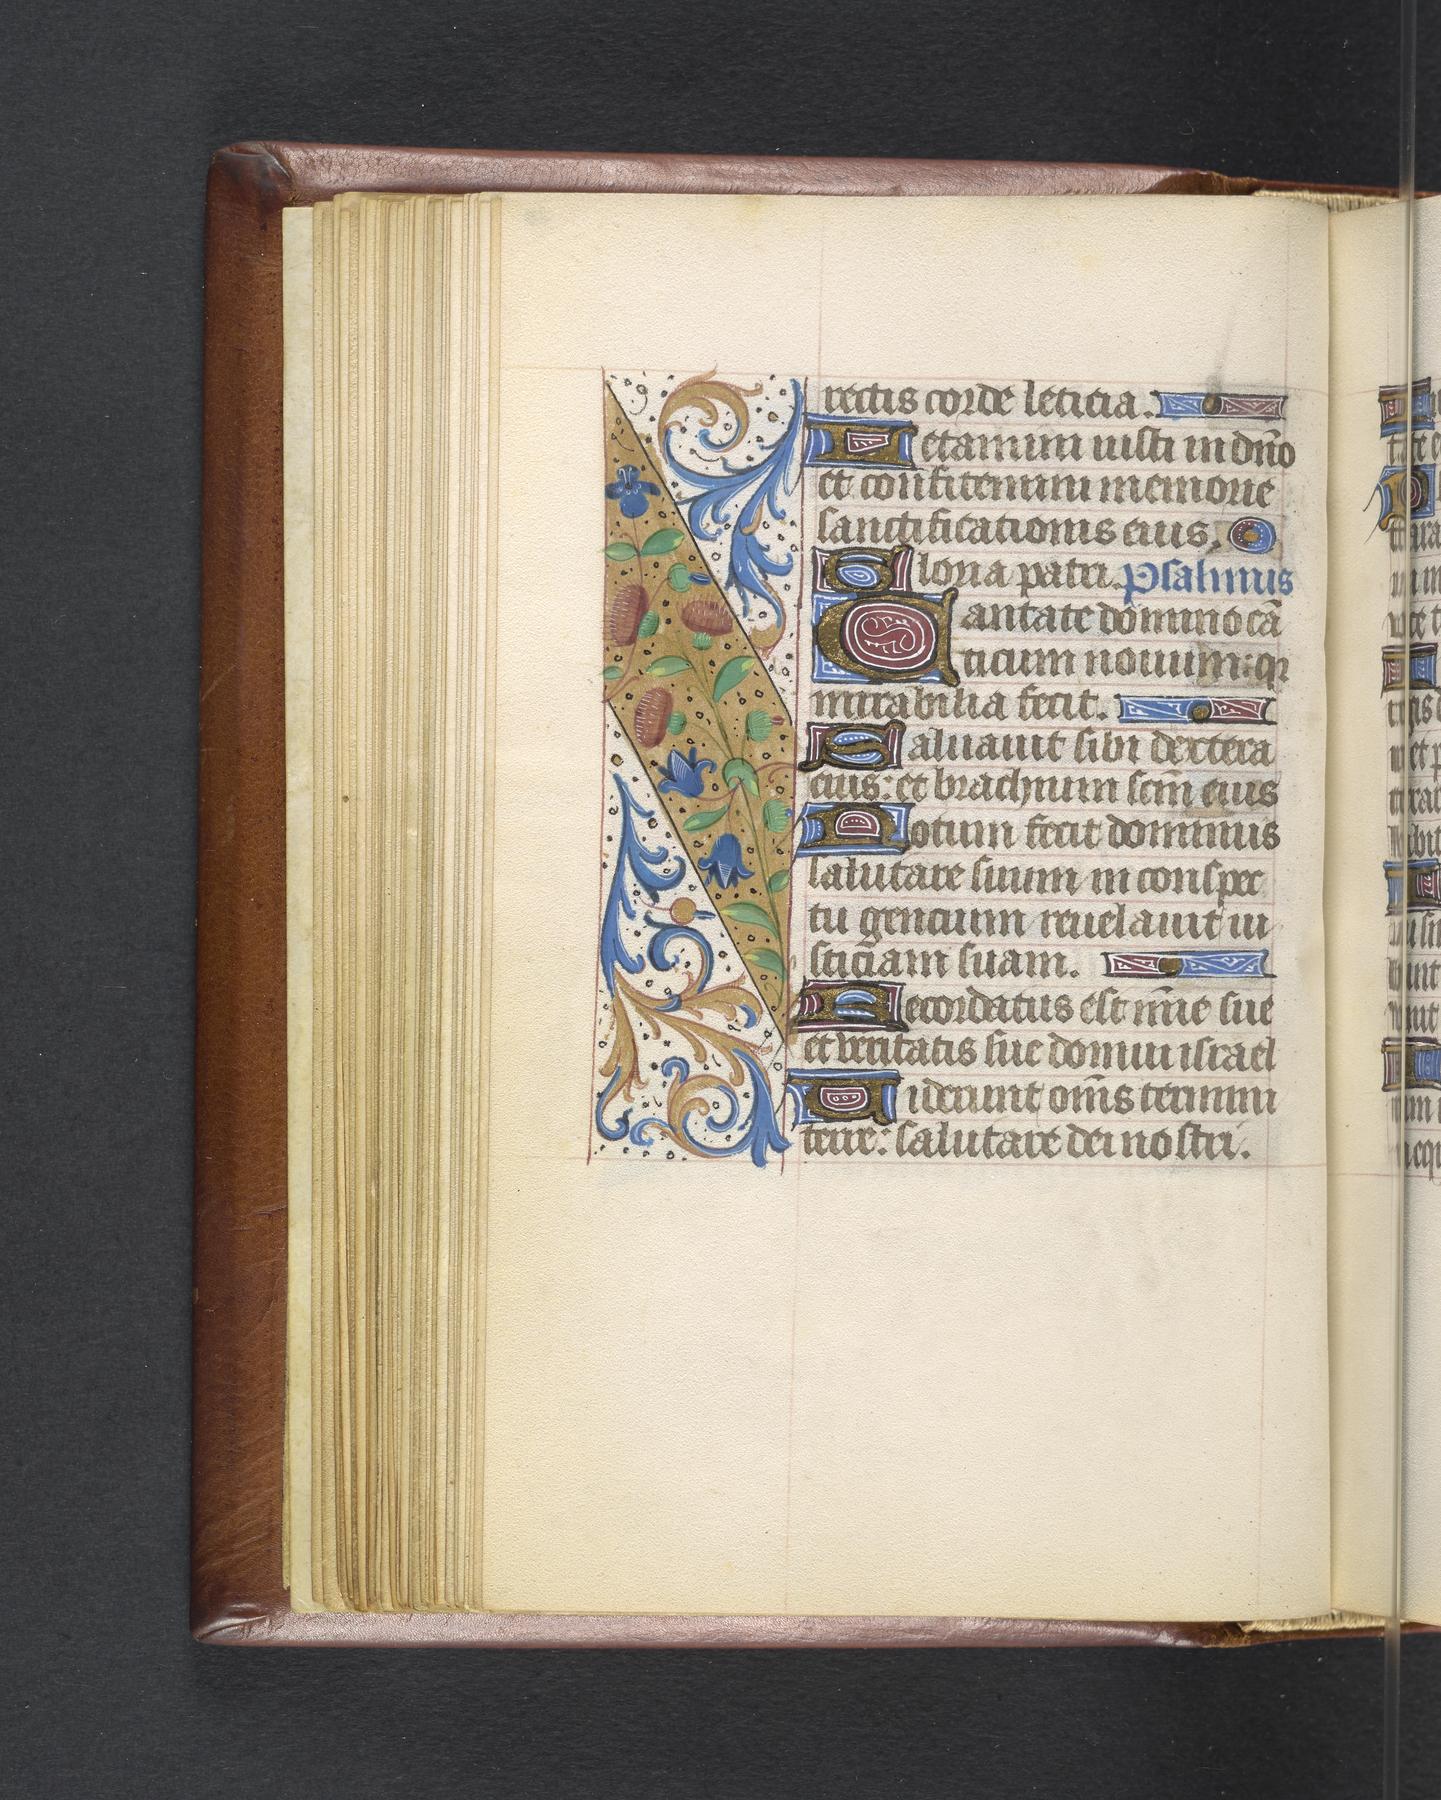 rectis corde leticia.
Letamini iusti in dño
et confitemini memorie
sanctificationis eius.
Gloria patri. Psalmus
Cantate domino cā
ticum nouum: q̄
mirabilia fecit.
Saluauit sibi dextera
eius: et brachium scm̄ eius
Notum fecit dominus
salutare suum in conspec
tu gencium reuelauit iu
sticiam suam.
Recordatus est mīe sue
et veritatis sue domui israel
Uiderunt om̄s termini
terre: salutare dei nostri.